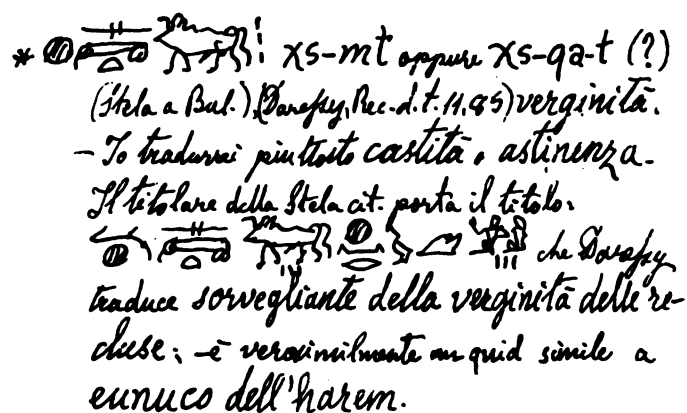 * χs-mt oppure χs-qa-t (?)
(Stela a Bul.), (Daressy, Rec. d. t. 11, 85) verginità.
– Io tradurrei piuttosto castità o astinenza.
Il titolare della Stela cit. porta il titolo:
che Daressy
traduce sorvegliante della verginità delle re-
cluse; – è verosimilmente un quid simile a
eunuco dell'harem.